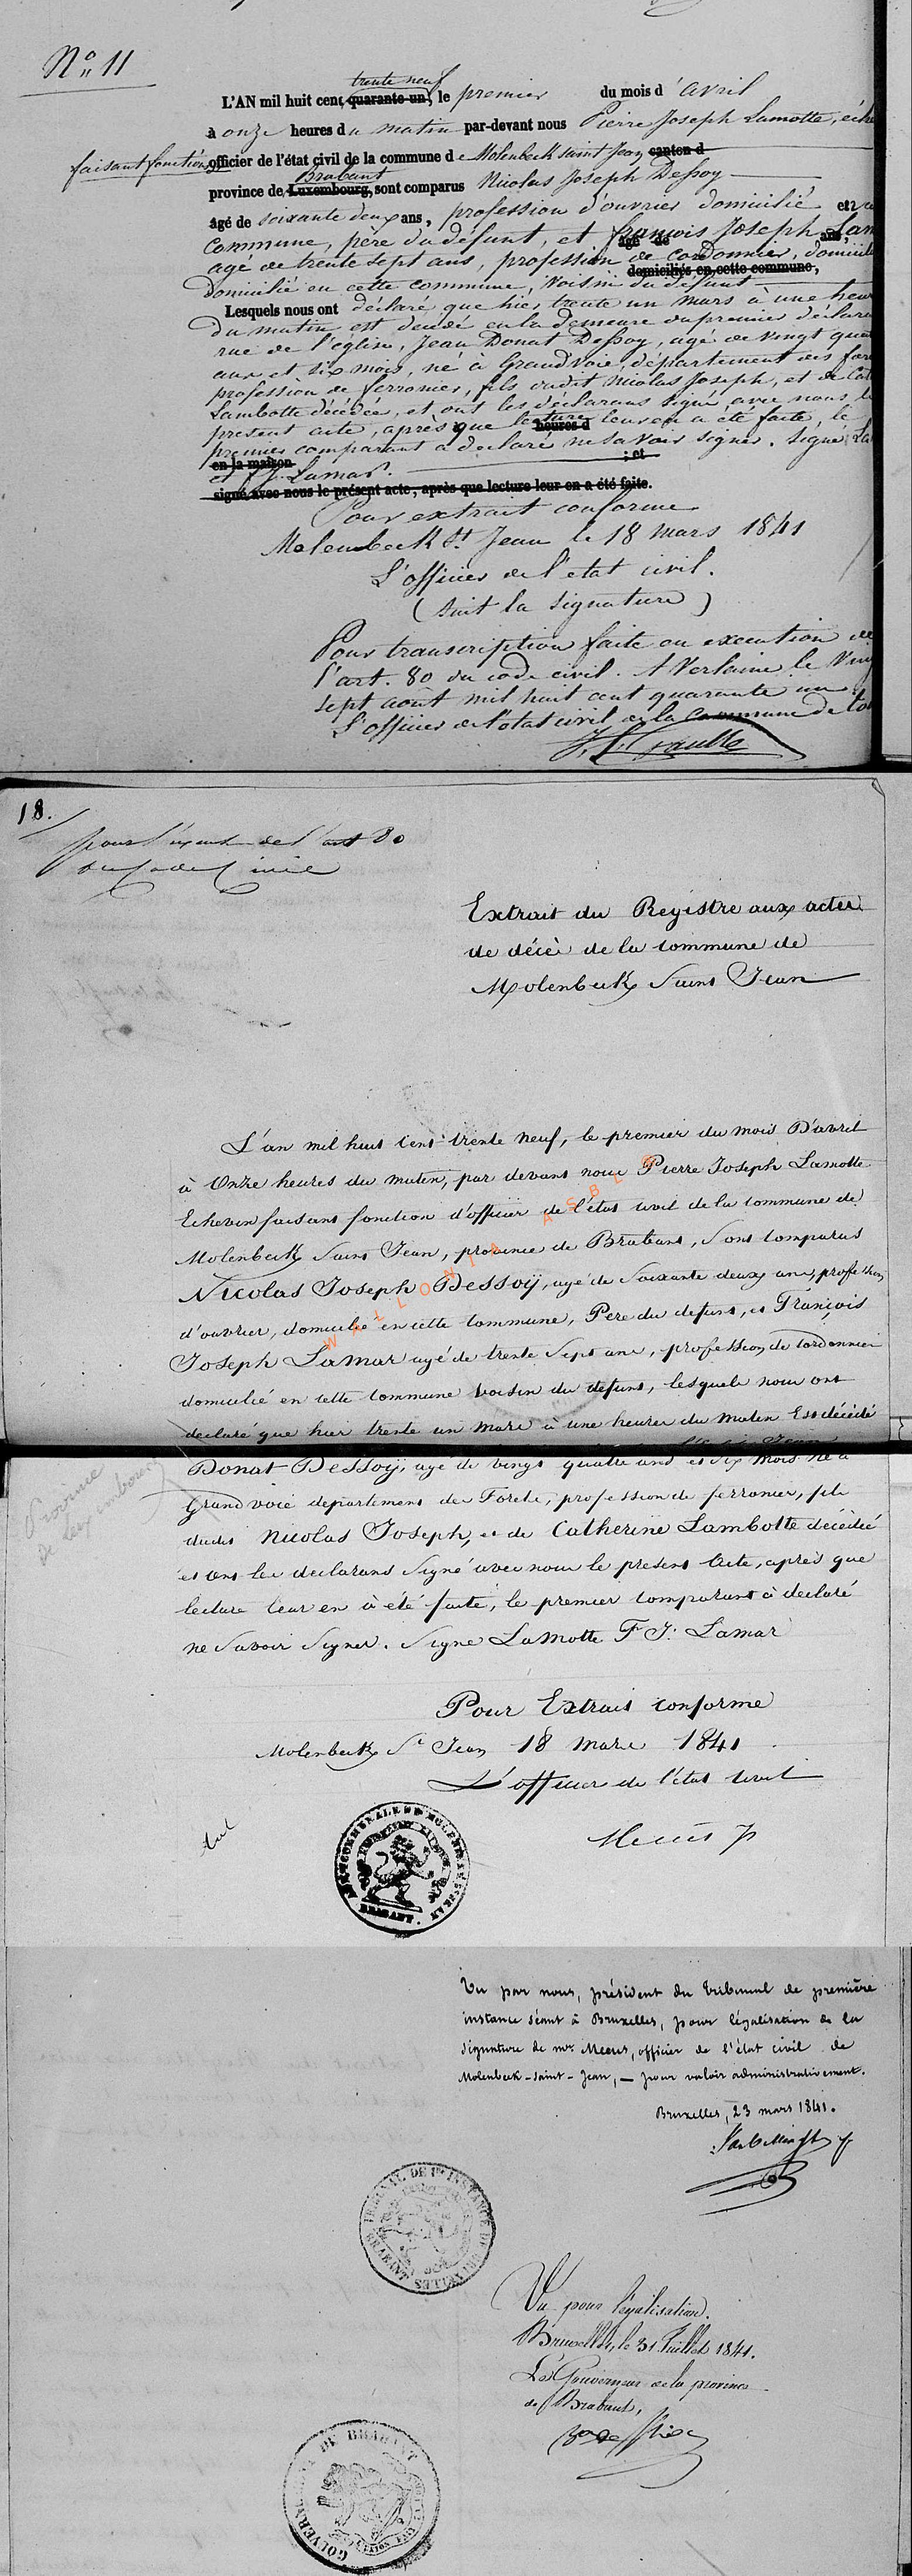 N° 11
trente neuf
L'AN mil huit cent quarante-un, le premier du mois d'avril
à onze heures du matin par-devant nous Pierre Joseph Lamotte, éche
faisant fonctions
officier de l'état civil de la commune de Molenbeek saint Jean canton d
Brabant
province de Luxembourg, sont comparus Nicolas Joseph Dessoy
âgé de soixante deux ans, profession d'ouvrier domicilié et
commune, père du défunt, et françois Joseph Lam
âgé de ans,
agé de trente sept ans, profession de cordonnier, domicilié
domiciliés en cette commune,
Domicilié en cette commune, voisin du défunt
Lesquels nous ont déclaré que hier trente un mars à une heur
du matin est décédé en la demeure du premier déclara
rue de l'église, Jean Donat Dessoy, agé de vingt qua
ans et six mois, né à Grandvoie, département des for
profession de ferronier, fils dudit Nicolas Joseph, et de Cat
Lambotte décédée, et ont les déclarans signé avec nous le
présent acte, après que lecture leur en a été faite, le
heures d
premier comparant a declaré ne savoir signer. Signé La
en la maison ; et
et f. J. Lamar.
signé avec nous le présent acte, après que lecture leur en a été faite.
Pour extrait conforme
Molenbeek St. Jean le 18 mars 1841
L'officier de l'état civil.
(suit la signature)
Pour transcription faite en execution de
l'art. 80 du code civil. A Verlaine le Ving
sept août mil huit cent quarante un
L'officier de l'etat civil de la commune de to
18.
pour l'exécut de l'art 80
du Code Civil
Extrait du Registre aux actes
de décès de la commune de
Molenbeek Saint Jean
L'an mil huit cent trente neuf, le premier du mois D'avril
à Onze heures du matin, par devant nous Pierre Joseph Lamotte
Echevin faisant fonction d'officier de l'état civil de la commune de
Molenbeek Saint Jean, province de Brabant, Sont comparus
Nicolas Joseph Dessoÿ, agé de Soixante deux ans, profession
d'ouvrier, domicilié en cette commune, Pere du defunt, et François
Joseph Lamar agé de trente Sept ans, profession de Cordonnier
domicilié en cette commune voisin du defunt, lesquels nous ont
declaré que hier trente un mars à une heures du matin Est décédé
WALLONIA ASBL
Donat Dessoÿ, agé de vingt quatre ans et Six mois né à
Grandvoie departement des Forets, profession de ferronier, fils
dudit Nicolas Joseph, et de Catherine Lambotte décédée
et ont les declarans Signé avec nous le présent Acte, après que
lecture leur en à été faite, le premier comparant à declaré
ne Savoir Signer. Signé Lamotte F J. Lamar
Province
de Luxembourg
Pour Extrait conforme
Molenbeek St Jean 18 mars 1841
L'officier de l'état civil
Meeus
BRABANT.
Vu par nous, président du tribunal de première
instance séant à Bruxelles, pour légalisation de la
signature de mr. Meeus, officier de l'état civil de
Molenbeek-saint-Jean, — pour valoir administrativement.
Bruxelles, 23 mars 1841.
TRIBUNAL DE 1re INSTANCE DE BRUXELLES BRABANT
Vu pour légalisation.
Bruxelles, le 31 Juillet 1841.
Le Gouverneur de la province
de Brabant,